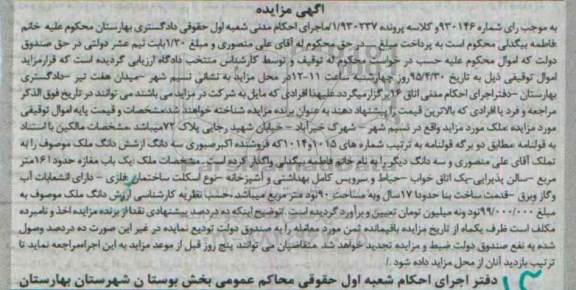 آگهی مزایده
به موجب رای شماره ۹۳۰۱۴۶ و کلاسه پرونده ۱/۹۳۰۲۳۷ ماجرای احکام مدنی شعبه اول حقوقی دادگستری بهارستان محکوم علیه خانم
فاطمه بیگدلی محکوم است به پرداخت مبلغ ... در حق محکوم له آقای علی منصوری و مبلغ ۱/۲۰ بابت نیم عشر دولتی در حق صندوق
دولت که اموال محکوم علیه حسب در خواست محکوم له توقیف و توسط کارشناس منتخب دادگاه ارزیابی گردیده است که قرارمزاید
اموال توقیفی ذیل به تاریخ ۹۵/۴/۳۰ روز چهارشنبه ساعت ۱۱-۱۲ در محل مزاید به نشانی نسیم شهر –میدان هفت تیر –دادگستری
بهارستان –اجرای احکام مدنی اتاق ۱۶ برگزار میگردد.علیهذا افرادی که مایل به شرکت در مزاید می باشند می توانند در تاریخ فوق الذکر
مراجعه و فرد یا افرادی که بالاترین قیمت را پیشنهاد دهند به عنوان برنده مزایده شناخته خواهند شد.مشخصات و قیمت پایه اموال توقیفی
مورد مزایده ملک مورد مزاید واقع در نسیم شهر – شهرک خیرآباد – خیابان شهید رجایی پلاک ۷۲ میباشد مشخصات مالکین با استناد
به قولنامه مطابق دو برگه قولنامه به ترتیب شماره های ۱۰۱۵ و ۱۰۱۴ که فروشنده اکبرصبوری سه دانگ ازشش دانگ ملک موصوف را به
تملک آقای علی منصوری و سه دانگ دیگر را به نام خانم فاطمه بیگدلی واگذار کرده است. مشخصات ملک :یک باب مغازه حدود ۱۶متر
مربع –سالن پذیرایی-یک اتاق خواب –حیاط و سرویس کامل بهداشتی و آشپزخانه –نوع اسکلت ساختمان فلزی – دارای انشعابات آب
وگاز وبرق –قدمت ساخت بنا حدودا ۱۷سال وبه مساحت ۹۰ نود متر مربع میباشد.حسب نظریه کارشناسی ارزش دانگ ملک موصوف به
مبلغ ۹۹/۰۰۰/۰۰۰ نود ونه میلیون تومان تعیین و برآورد گردیده است. توضیح اینکه ده درصد پیشنهادی نقدا از برنده مزایده اخذ و نامبرده
مکلف است ظرف یکماه از تاریخ مزایده باقیمانده ثمن مورد معامله را به صندوق دولت تودیع نماید در غیر این صورت ده درصد وصول
شده به نفع صندوق دولت ضبط و مزایده تجدید خواهد شد. متقاضیان می توانند پنج روز قبل از موعد مزاید به این اجرامراجعه نماید تا
ترتیب بازدید آنان از محل مزاید داده شود ./
دفتر اجرای احکام شعبه اول حقوقی محاکم عمومی بخش بوستا ن شهرستان بهارستان